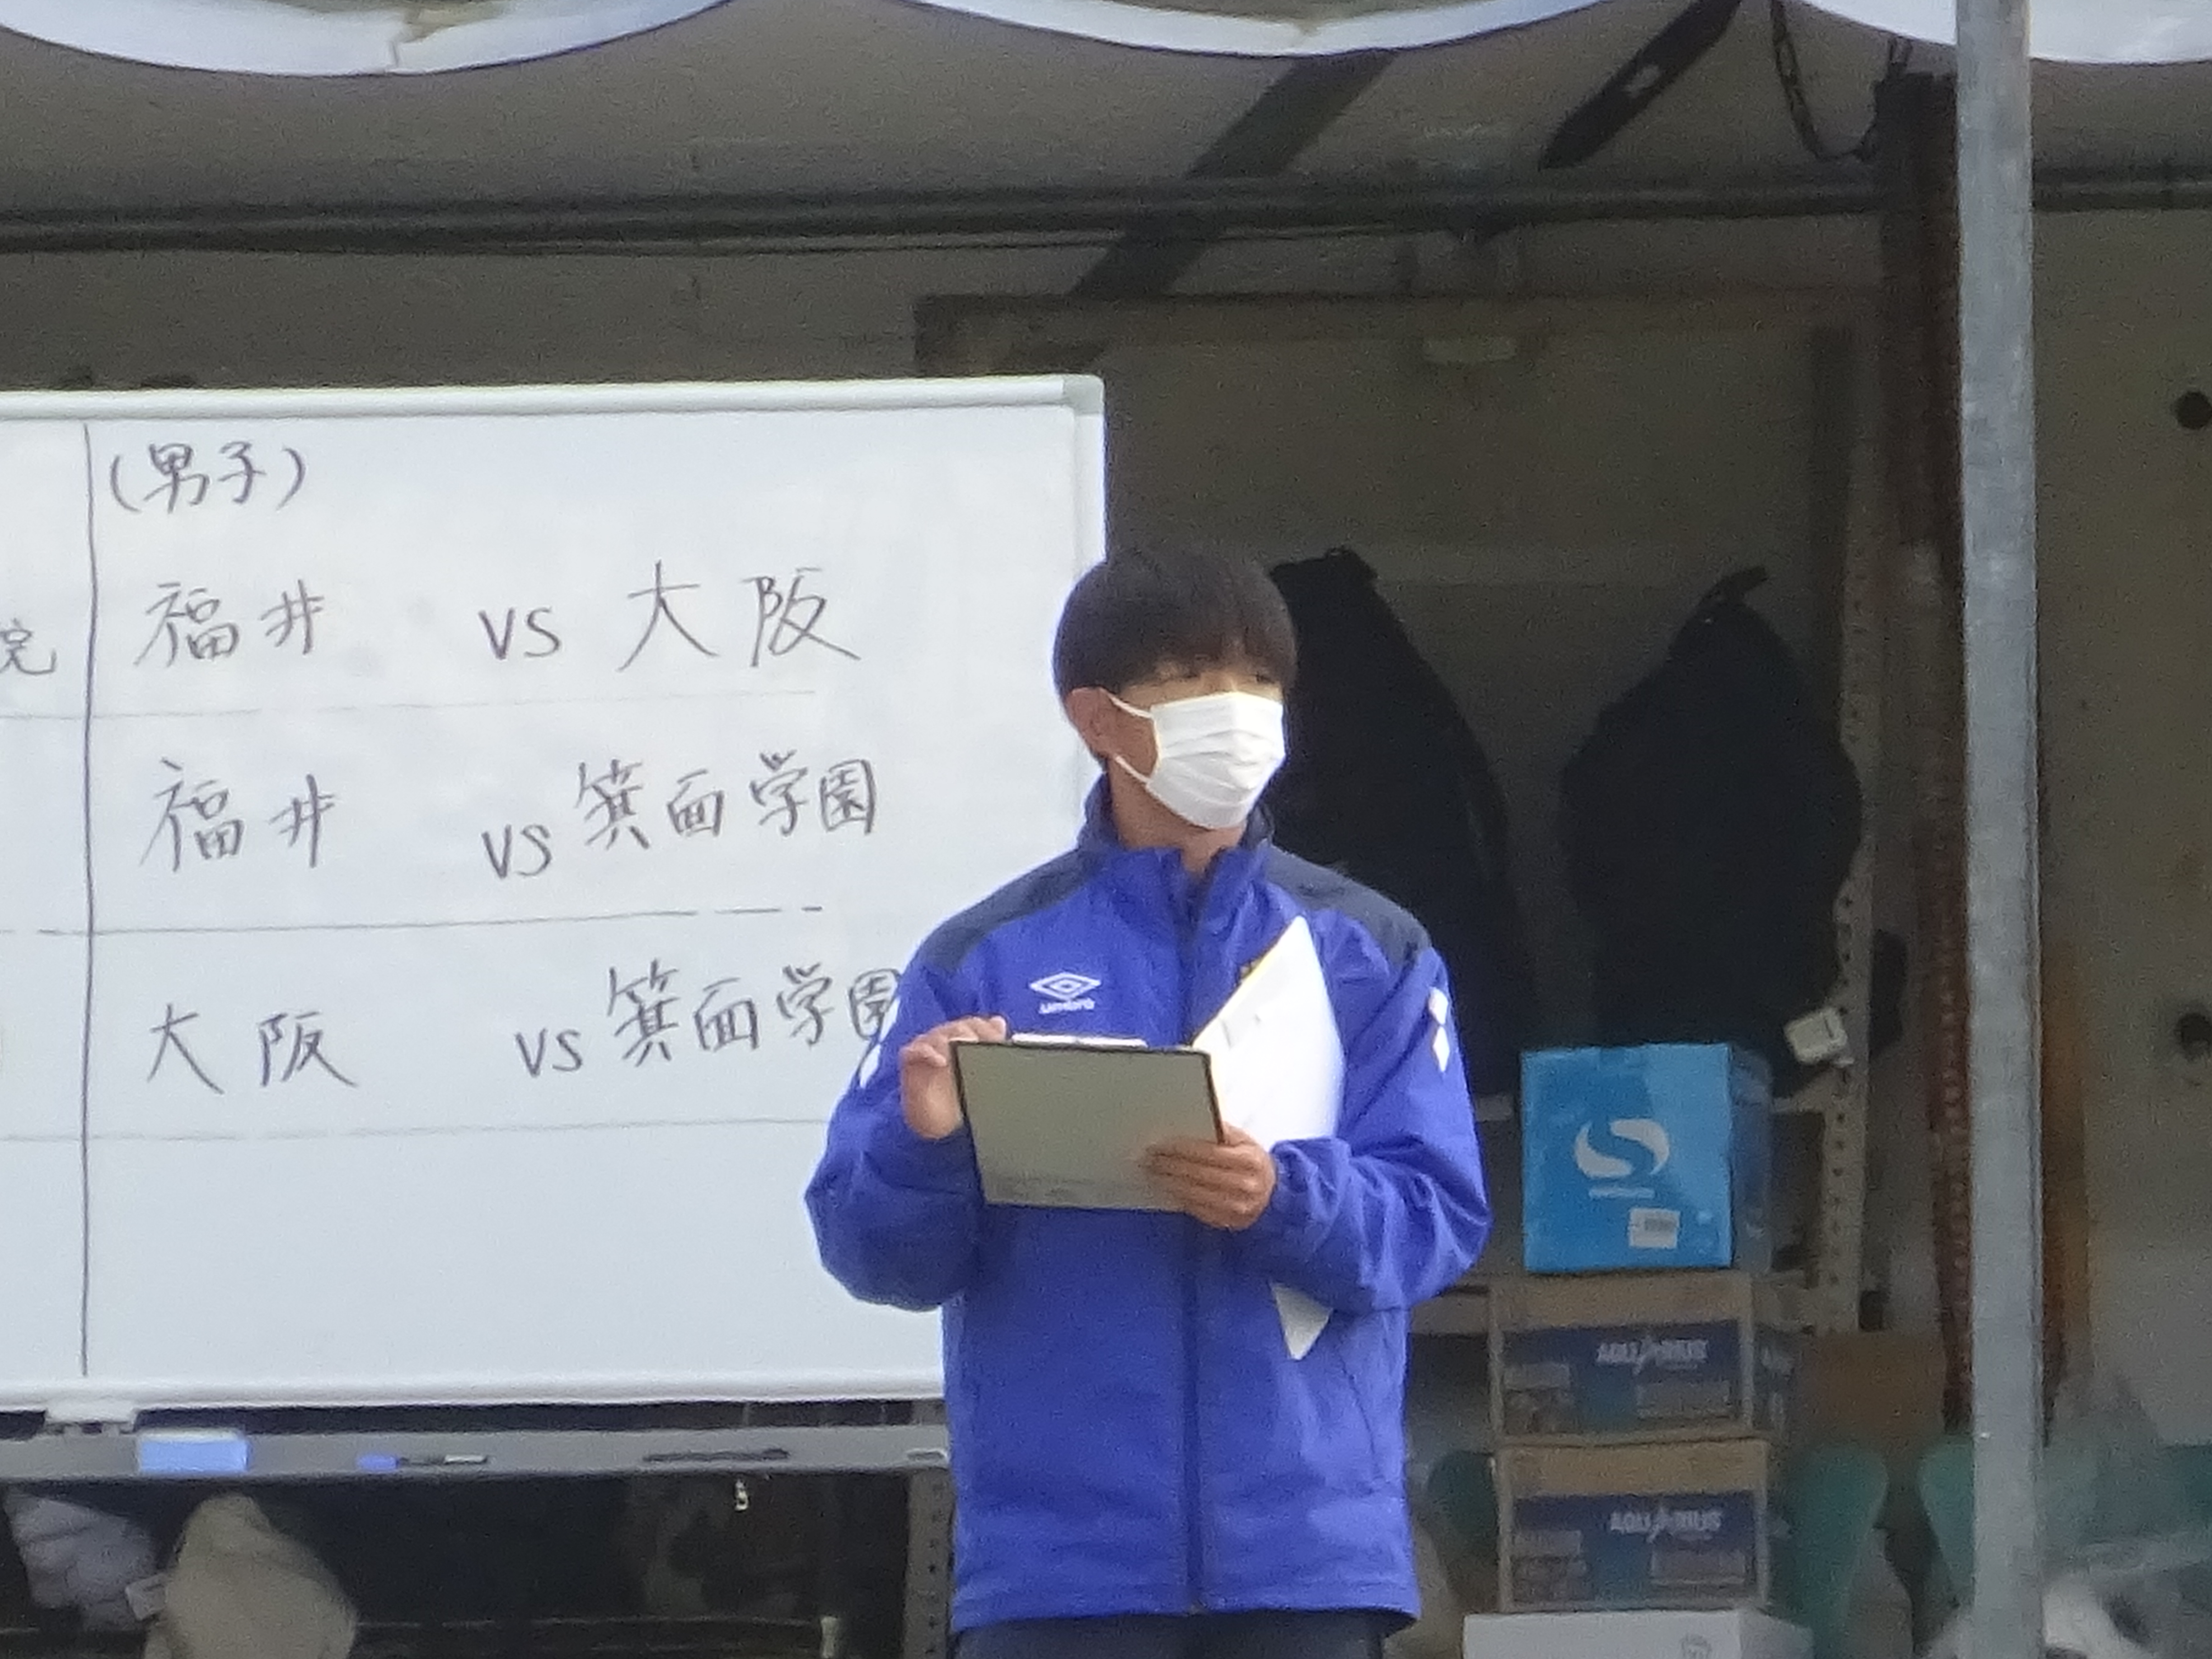 (男子)
院
福井 VS 大阪
福井 VS 箕面学園
大阪 VS 箕面学園
umbro
AQUARIUS
AQUARIUS